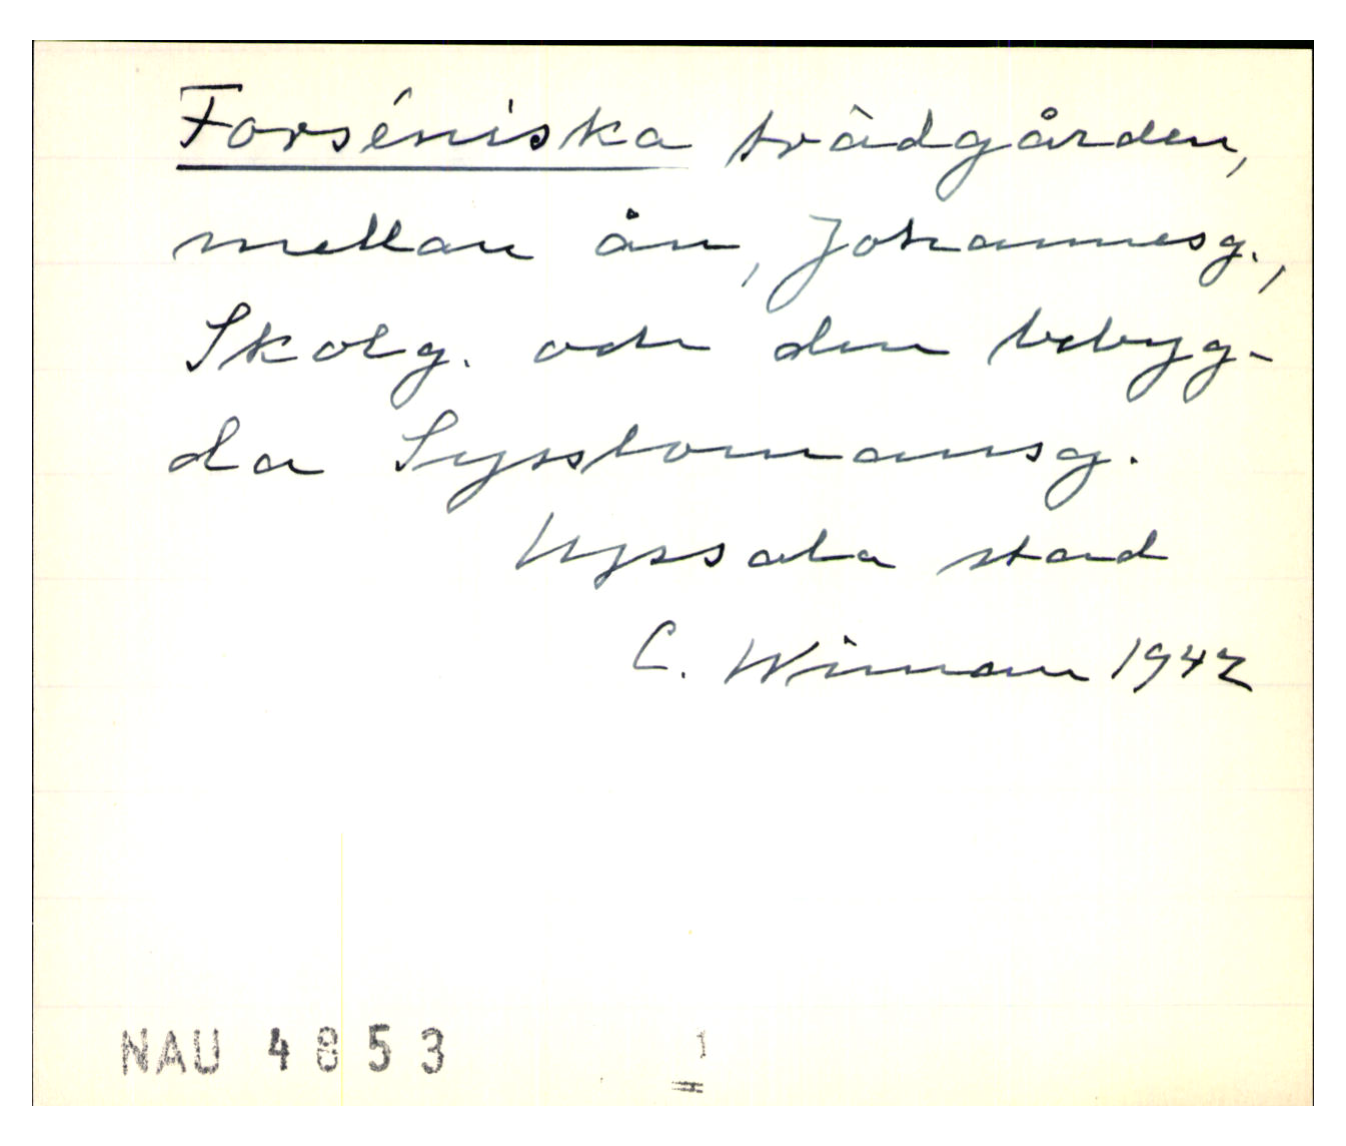 Forséniska trädgården,
mellan ån, Johannesg.,
Skolg. och den bebyg-
da Sysslomansg.
Uppsala stad
C. Wiman 1942
NAU 4853 1